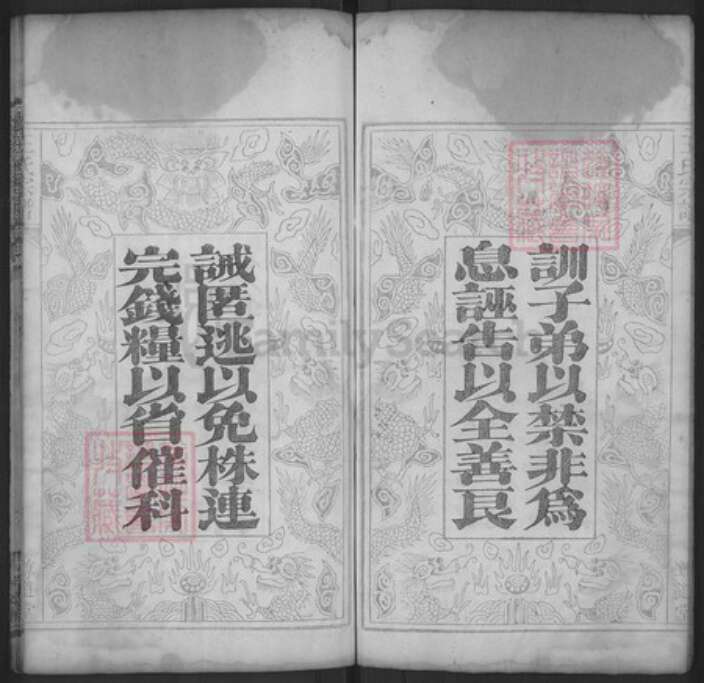 訓子弟以禁非為
息誣告以全善良
誡匿逃以免株連
完錢糧以省催科
FamilySearch